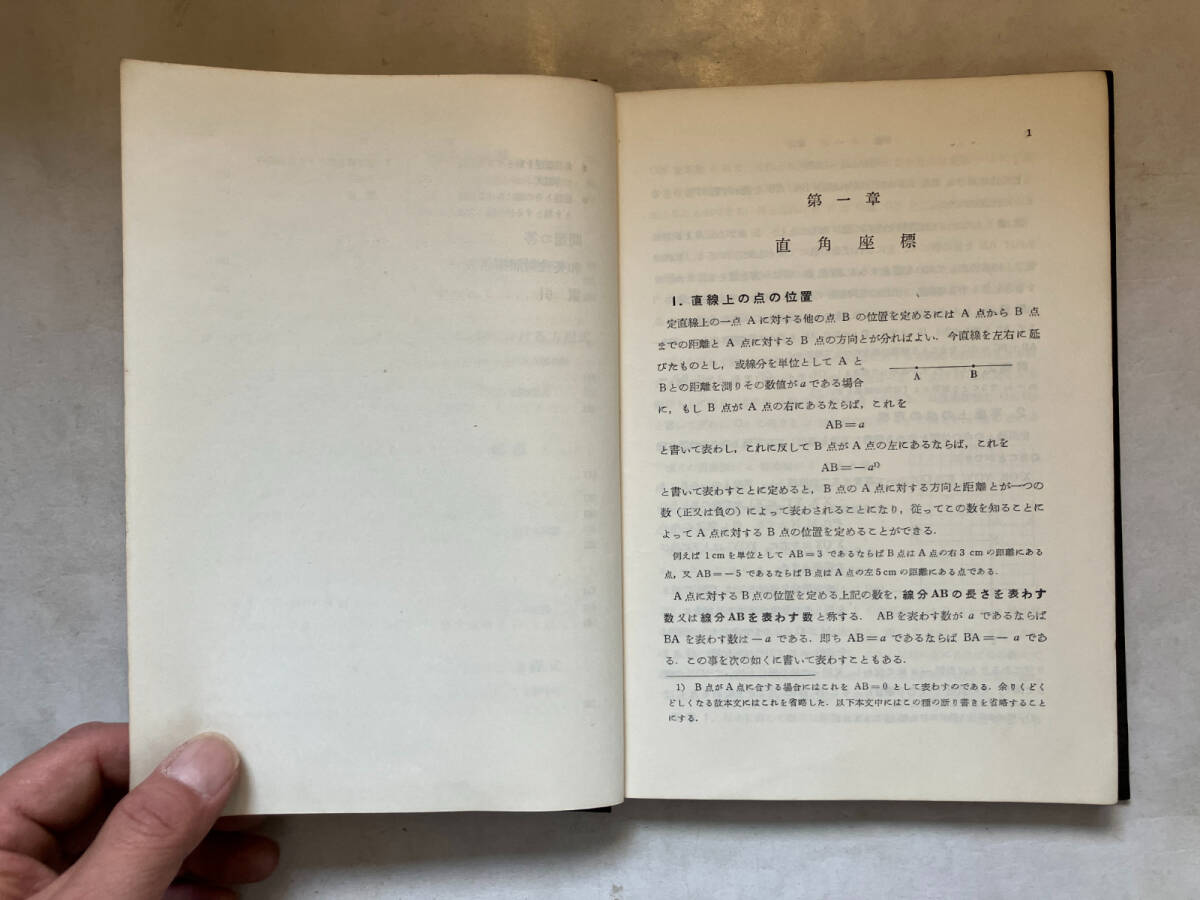 1
第一章
直角座標
1. 直線上の点の位置
定直線上の一点 A に対する他の点 B の位置を定めるには A 点から B 点
までの距離と A 点に対する B 点の方向とが分ればよい. 今直線を左右に延
びたものとし, 或線分を単位として A と
Bとの距離を測りその数値が a である場合
に, もし B 点が A 点の右にあるならば, これを
A B
AB=a
と書いて表わし, これに反して B 点が A 点の左にあるならば, これを
AB=−a¹⁾
と書いて表わすことに定めると, B 点の A 点に対する方向と距離とが一つの
数 (正又は負の) によって表わされることになり, 従ってこの数を知ることに
よって A 点に対する B 点の位置を定めることができる.
例えば 1cm を単位として AB=3 であるならば B 点は A 点の右 3 cm の距離にある
点, 又 AB=−5 であるならば B 点は A 点の左 5 cm の距離にある点である.
A 点に対する B 点の位置を定める上記の数を, 線分ABの長さを表わす
数又は線分ABを表わす数と称する. ABを表わす数が a であるならば
BA を表わす数は −a である. 即ち AB=a であるならば BA=−a であ
る. この事を次の如くに書いて表わすこともある.
1) B 点が A 点に合する場合にはこれを AB=0 として表わすのである. 余りくどく
どしくなる故本文にはこれを省略した. 以下本文中にはこの種の断り書きを省略すること
にする.